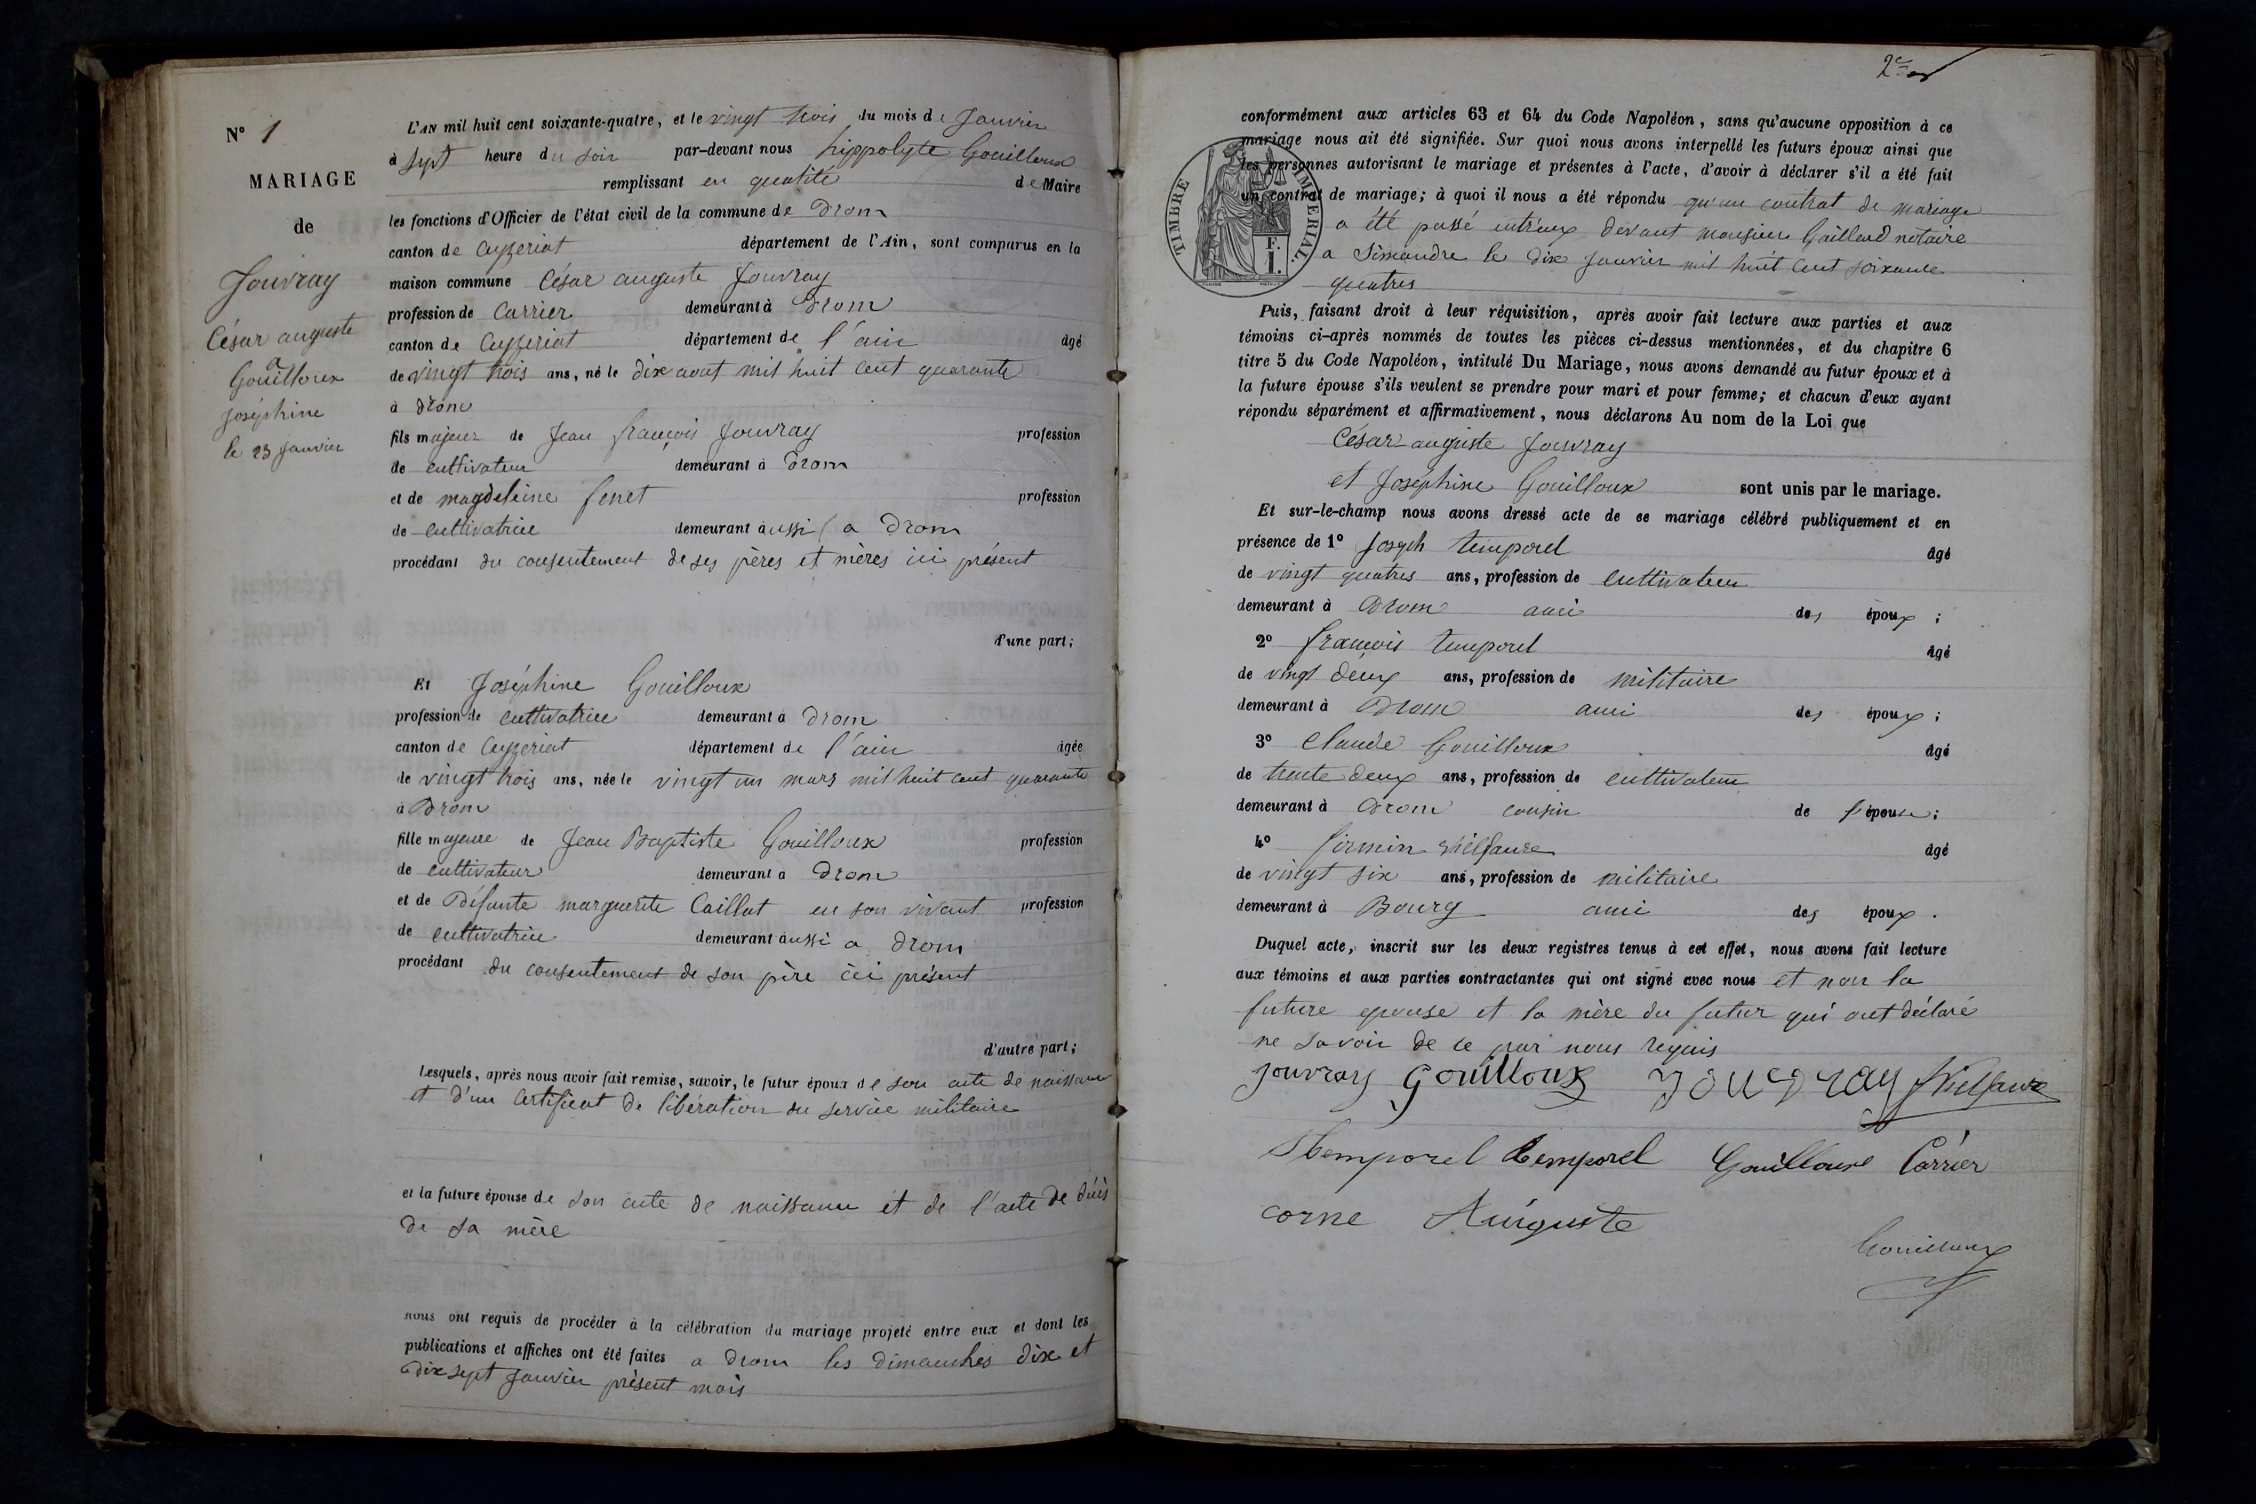 N° 1
MARIAGE
de
Jouvray
César auguste
a
Gouilloux
Joséphine
le 23 Janvier
L'AN mil huit cent soixante-quatre, et le vingt trois du mois de Janvier
à sept heure du soir par-devant nous hippolyte Gouilloux
remplissant en qualité de Maire
les fonctions d'Officier de l'état civil de la commune de Drom
canton de Ceyzeriat département de l'Ain, sont comparus en la
maison commune César auguste Jouvray
profession de Carrier demeurant à Drom
canton de Ceyzeriat département de l'ain âgé
de vingt trois ans, né le dix aout mil huit cent quarante
à drom
fils majeur de Jean françois Jouvray profession
de cultivateur demeurant à Drom
et de magdeleine fenet profession
de cultivatrice demeurant aussi a Drom
procédant du consentement de ses pères et mères ici présent
d'une part;
Et Joséphine Gouilloux
profession de cultivatrice demeurant à Drom
canton de Ceyzeriat département de l'ain âgée
de vingt trois ans, née le vingt un mars mil huit cent quarante
à Drom
fille majeure de Jean Baptiste Gouilloux profession
de cultivateur demeurant à Drom
et de Défunte marguerite Caillat en son vivant profession
de cultivatrice demeurant aussi a drom
procédant du consentement de son père ici présent
d'autre part;
Lesquels, après nous avoir fait remise, savoir, le futur époux de son acte de naissance
et d'un certificat de libération du service militaire
et la future épouse de son acte de naissance et de l'acte de décès
de sa mère
nous ont requis de procéder à la célébration du mariage projeté entre eux et dont les
publications et affiches ont été faites a drom les dimanches dix et
dix sept Janvier présent mois
conformément aux articles 63 et 64 du Code Napoléon, sans qu'aucune opposition à ce
mariage nous ait été signifiée. Sur quoi nous avons interpellé les futurs époux ainsi que
les personnes autorisant le mariage et présentes à l'acte, d'avoir à déclarer s'il a été fait
un contrat de mariage; à quoi il nous a été répondu qu'un contrat de mariage
a été passé entreux devant monsieur Gailland notaire
a Simandre le dix Janvier mil huit cent soixante
quatres
TIMBRE IMPERIAL.
F.
I.
Puis, faisant droit à leur réquisition, après avoir fait lecture aux parties et aux
témoins ci-après nommés de toutes les pièces ci-dessus mentionnées, et du chapitre 6
titre 5 du Code Napoléon, intitulé Du Mariage, nous avons demandé au futur époux et à
la future épouse s'ils veulent se prendre pour mari et pour femme; et chacun d'eux ayant
répondu séparément et affirmativement, nous déclarons Au nom de la Loi que
César auguste Jouvray
et Joséphine Gouilloux sont unis par le mariage.
Et sur-le-champ nous avons dressé acte de ce mariage célébré publiquement et en
présence de 1° Joseph temporel âgé
de vingt quatres ans, profession de cultivateur
demeurant à Drom ami des époux;
2° françois temporel âgé
de vingt deux ans, profession de militaire
demeurant à Drom ami des époux;
3° Claude Gouilloux âgé
de trente deux ans, profession de cultivateur
demeurant à Drom cousin de l'épouse;
4° firmin vielfaure âgé
de vingt six ans, profession de militaire
demeurant à Bourg ami des époux.
Duquel acte, inscrit sur les deux registres tenus à cet effet, nous avons fait lecture
aux témoins et aux parties contractantes qui ont signé avec nous et non la
future epouse et la mère du futur qui ont déclaré
ne savoir de ce par nous requis
Jouvray Gouilloux Jouvray Vielfaure
temporel temporel Gouilloux Carrier
corne Auguste
Gouilloux